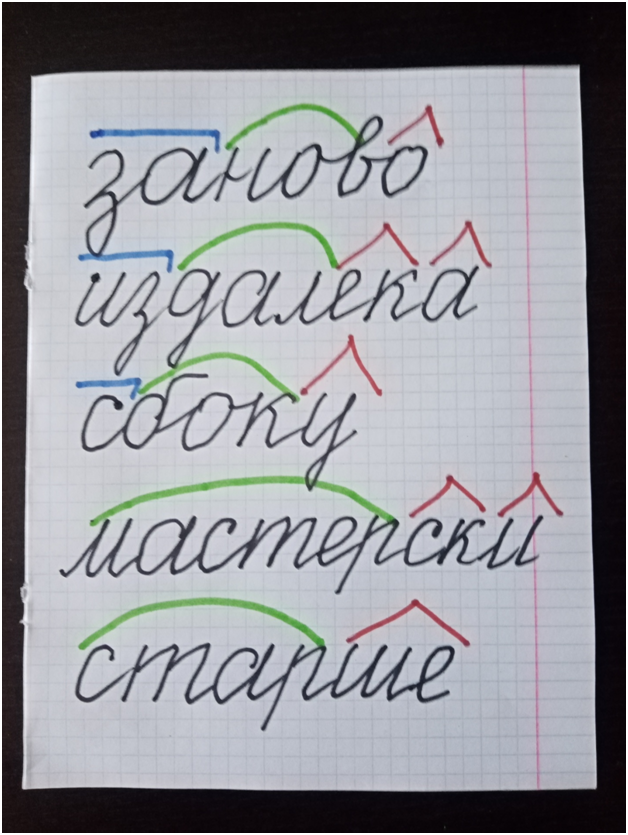 заново
издалека
сбоку
мастерски
старше